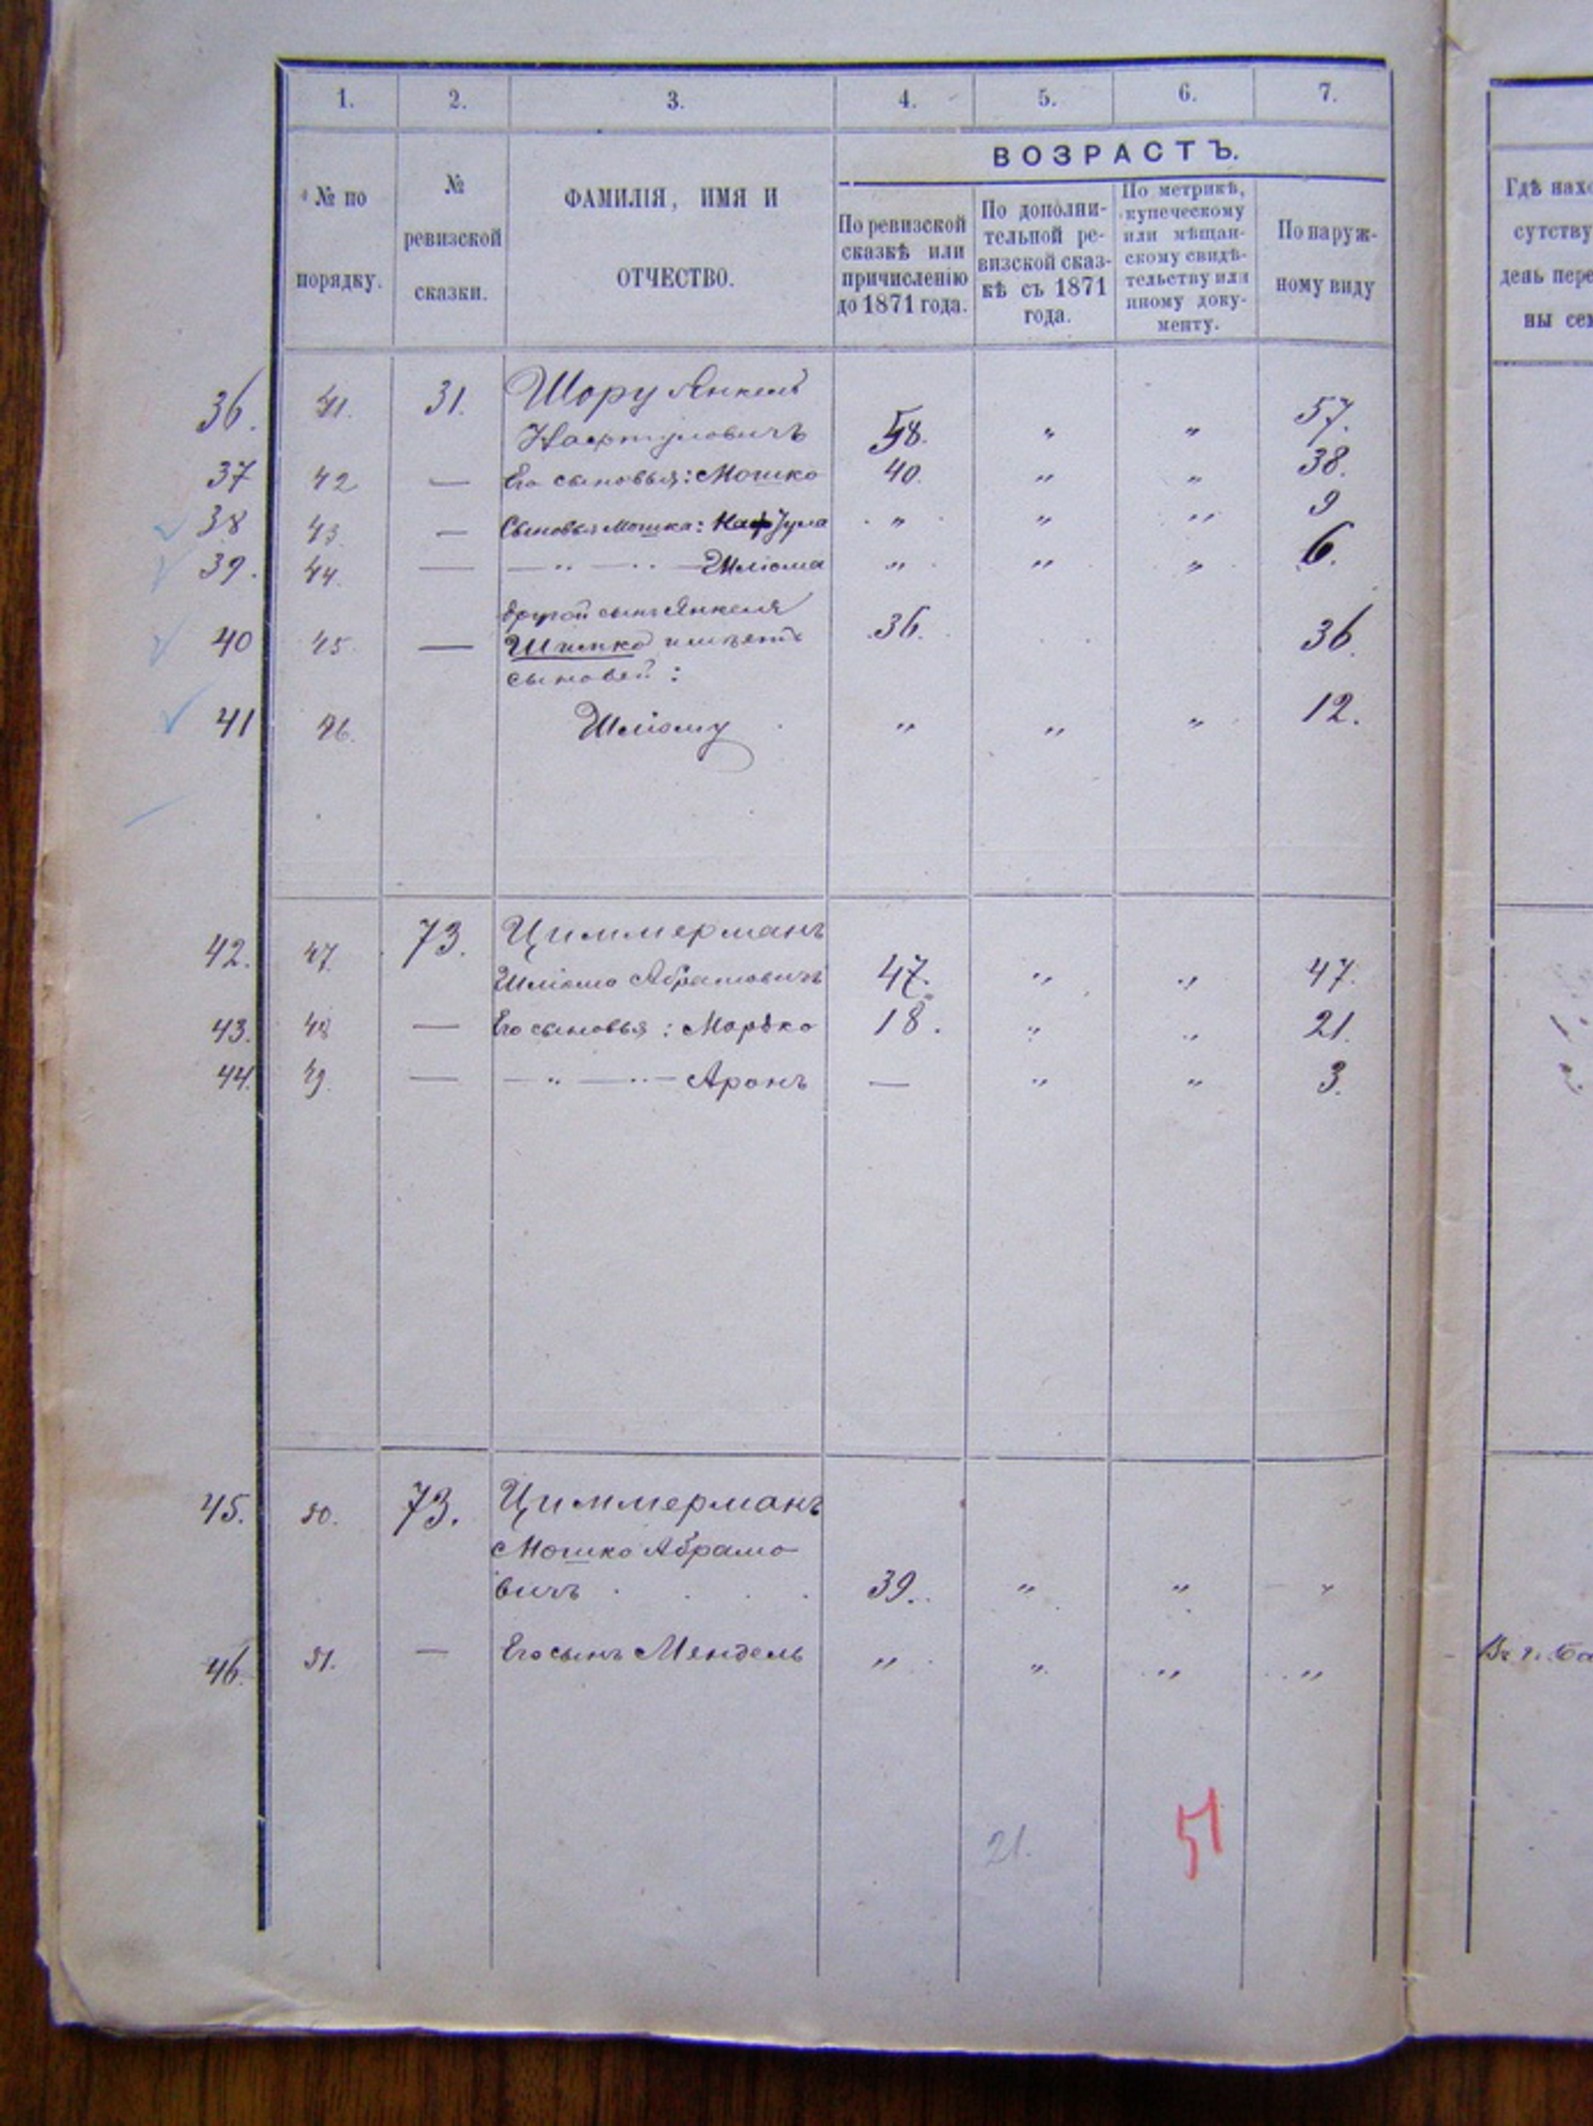 1. 2. 3. 4. 5. 6. 7.
ВОЗРАСТЪ.
№ по
порядку.
№
ревизской
сказки.
ФАМИЛІЯ, ИМЯ И
ОТЧЕСТВО.
По ревизской
сказкѣ или
причисленію
до 1871 года.
По дополни-
тельной ре-
визской сказ-
кѣ съ 1871
года.
По метрикѣ,
купеческому
или мѣщан-
скому свидѣ-
тельству или
иному доку-
менту.
По наруж-
ному виду
Гдѣ нахо
сутству
день пере
ны сем
36. 41. 31. Шору Янкель
Нафтуловичъ 58. " " 57.
37 42 — Его сыновья: Мошко 40. " " 38.
38 43. — Сыновья Мошка: Нафтула " " " 9
39. 44. — — " — " — Шліома " " " 6.
другой сынъ Янкеля
40 45. — Шимко имѣетъ 36. 36.
сыновей:
41 46. Шліому " " " 12.
42. 47. 73. Циммерманъ
Шліома Абрамовичъ 47. " " 47.
43. 48 — Его сыновья: Мордко 18. " " 21.
44. 49. — — " — " — Аронъ — " " 3.
45. 50. 73. Циммерманъ
Мошко Абрамо
вичъ . . . 39. " " "
46. 51. — Его сынъ Мендель " " " "
21. 51